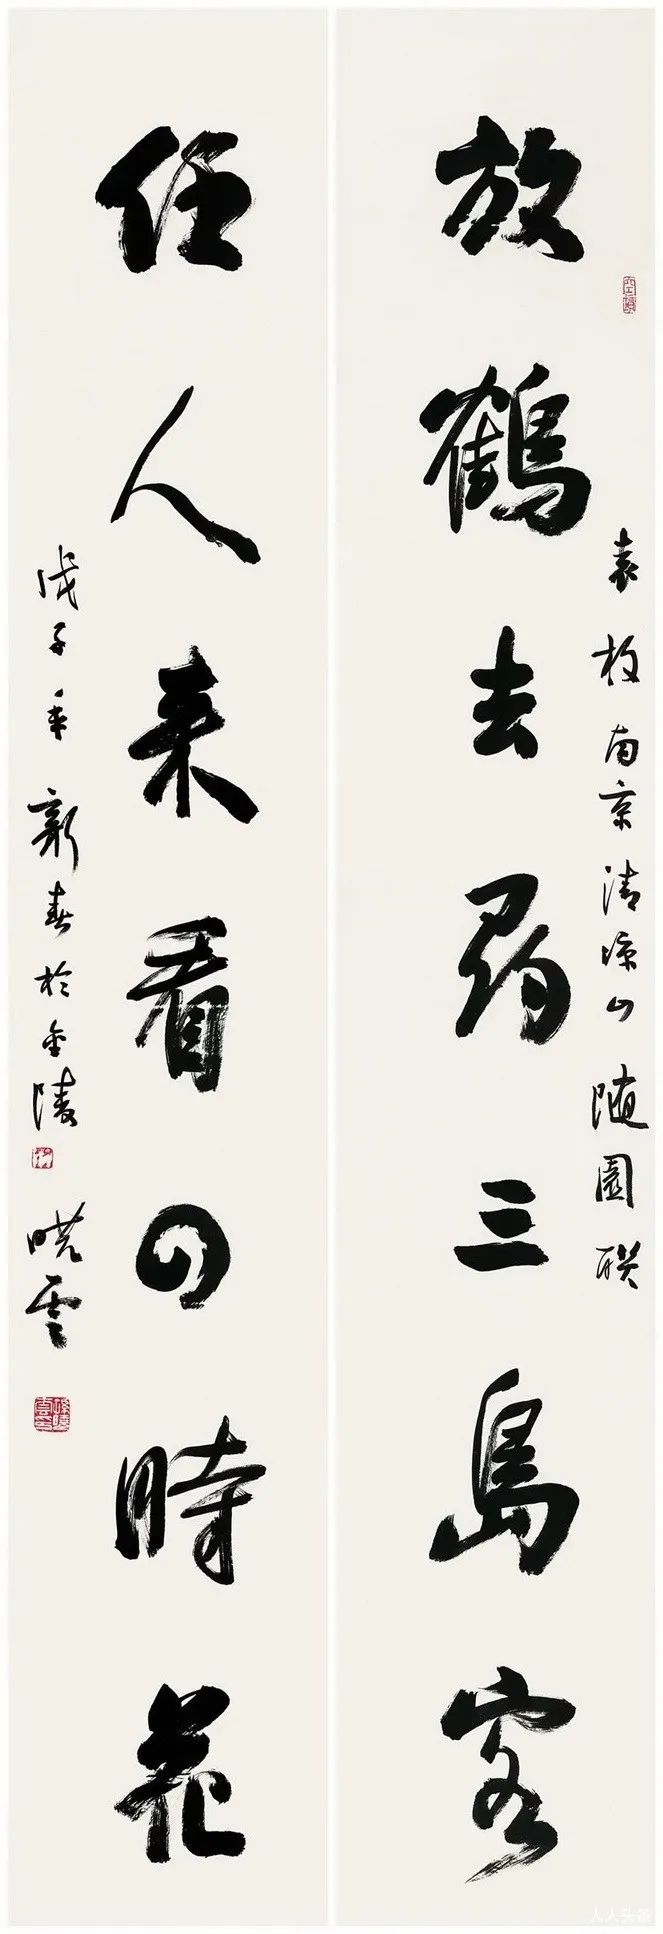 放鶴去尋三島客
袁枚南京清涼山随園聯
任人来看四時花
戊子年新春於金陵
曉雲
人人头条